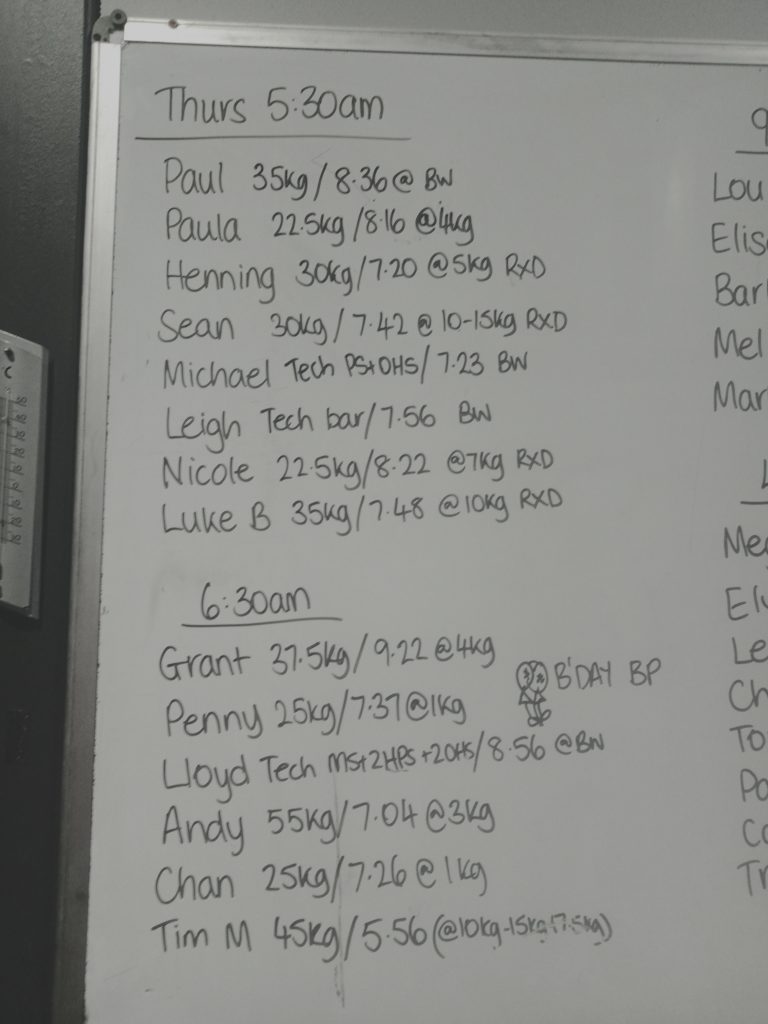 Thurs 5:30am
Paul 35kg/8.36@ BW
Paula 22.5kg/8.16 @4kg
Henning 30kg/7.20 @5kg RXD
Sean 30kg/7.42 @ 10-15kg RXD
Michael Tech PS+OHS/7.23 BW
Leigh Tech bar/7.56 BW
Nicole 22.5kg/8.22 @7kg RXD
Luke B 35kg/7.48 @10kg RXD
6:30am
Grant 37.5kg/9.22 @4kg
B'DAY BP
Penny 25kg/7.37@1kg
Lloyd Tech MS+2HPS+2OHS/8.56 @BW
Andy 55kg/7.04 @3kg
Chan 25kg/7.26 @ 1kg
Tim M 45kg/5.56 (@10kg-15kg
9
Lou
Elis
Bar
Mel
Mar
Me
El
Le
Ch
To
Po
Co
Tr